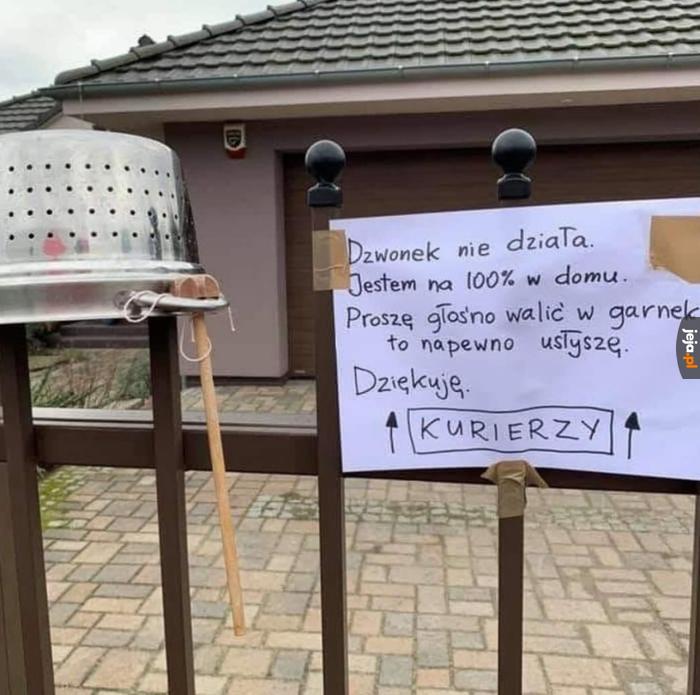 Dzwonek nie działa.
Jestem na 100% w domu.
Proszę głośno walić w garnek
to napewno usłyszę.
Dziękuję.
KURIERZY
jeja.pl